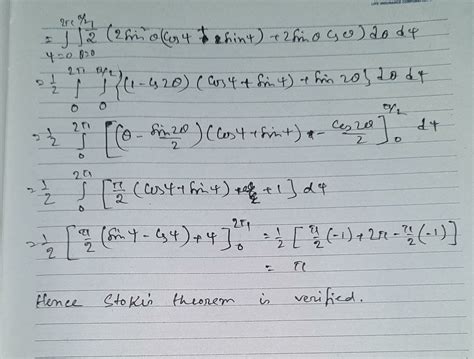 = ∫_{φ=0}^{2π} ∫_{θ=0}^{π/2} 1/2 (2sin²θ(cosφ + sinφ) + 2sinθ cosθ) dθ dφ
= 1/2 ∫_0^{2π} ∫_0^{π/2} {(1-cos2θ) (cosφ + sinφ) + sin2θ} dθ dφ
= 1/2 ∫_0^{2π} [(θ - sin2θ/2) (cosφ + sinφ) - cos2θ/2]_0^{π/2} dφ
= 1/2 ∫_0^{2π} [π/2 (cosφ + sinφ) + 1] dφ
= 1/2 [π/2 (sinφ - cosφ) + φ]_0^{2π} = 1/2 [π/2 (-1) + 2π - π/2 (-1)]
= π
Hence Stok's theorem is verified.